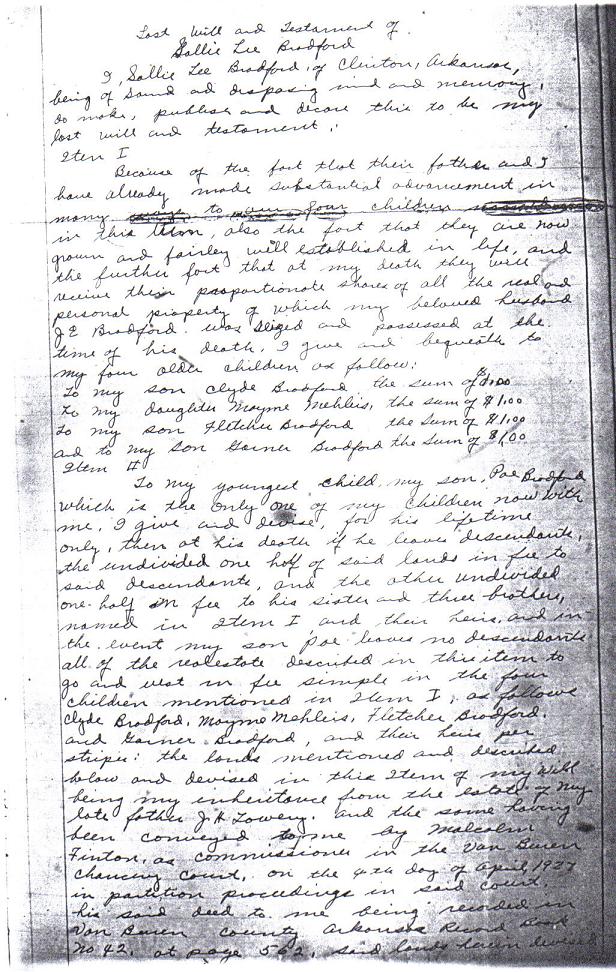 Last Will and Testament of
Sallie Lee Bradford
I, Sallie Lee Bradford, of Clinton, Arkansas,
being of sound ad disposing mind and memory,
do make, publish and decare this to be my
last will and testament:
Item I
Because of the fact that their father and I
have already made substantial advancement in
many ways to our four children
in this Item, also the fact that they are now
grown and fairley well established in life, and
the further fact that at my death they will
receive their propotionate shares of all the real and
personal property of which my beloved husband
J E Bradford was seized and possessed at the
time of his death, I give and bequeath to
my four older children as follow:
To my son Clyde Bradford the sum of $1.00
To my daughter Mayme Mehlis, the sum of $1.00
To my son Fletcher Bradford the sum of $1.00
ad to my son Garner Bradford the sum of $1.00
Item II
To my youngest child my son, Poe Bradford
which is the only one of my children now with
me, I give and devise, for his lifetime
only, then at his death if he leaves descendants,
the undivided one half of said lands in fee to
said descendants, and the other undivided
one-half in fee to his sister and three brothers,
named in Item I and their heirs, and in
the event my son Poe leaves no descendants
all of the realestate described in this item to
go and vest in fee simple in the four
children mentioned in Item I, as follows
Clyde Bradford, Mayme Mehlis, Fletcher Bradford,
and Garner Bradford, and their heirs per
stripes: the lands mentioned and described
below and devised in this Item of my will
being my inheritance from the estate of my
late father J. H. Lowery. and the same having
been conveyed to me by Malcolm
Finton, as commissioner in the Van Buren
chancery court, on the 4th day of April 1927
in partition proceedings in said court.
his said deed to me being recorded in
Van Buren county Arkansas Record Book
No 42, at page 562, said lands herein devised